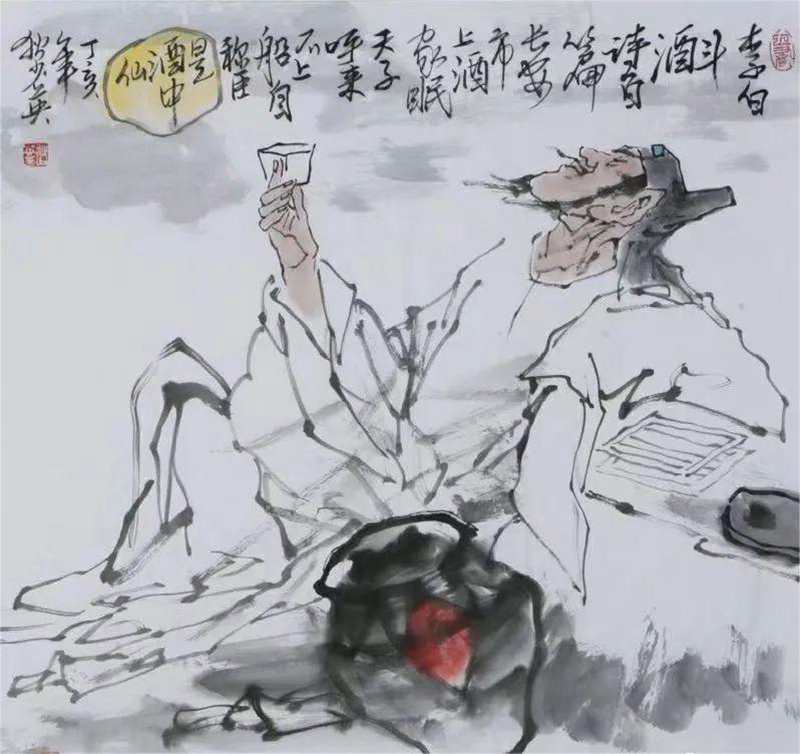 李白
斗
酒
诗百
篇
长安
市
上酒
家眠
天子
呼来
不上
船自
称臣
是
酒中
仙
丁亥
年
狄少英